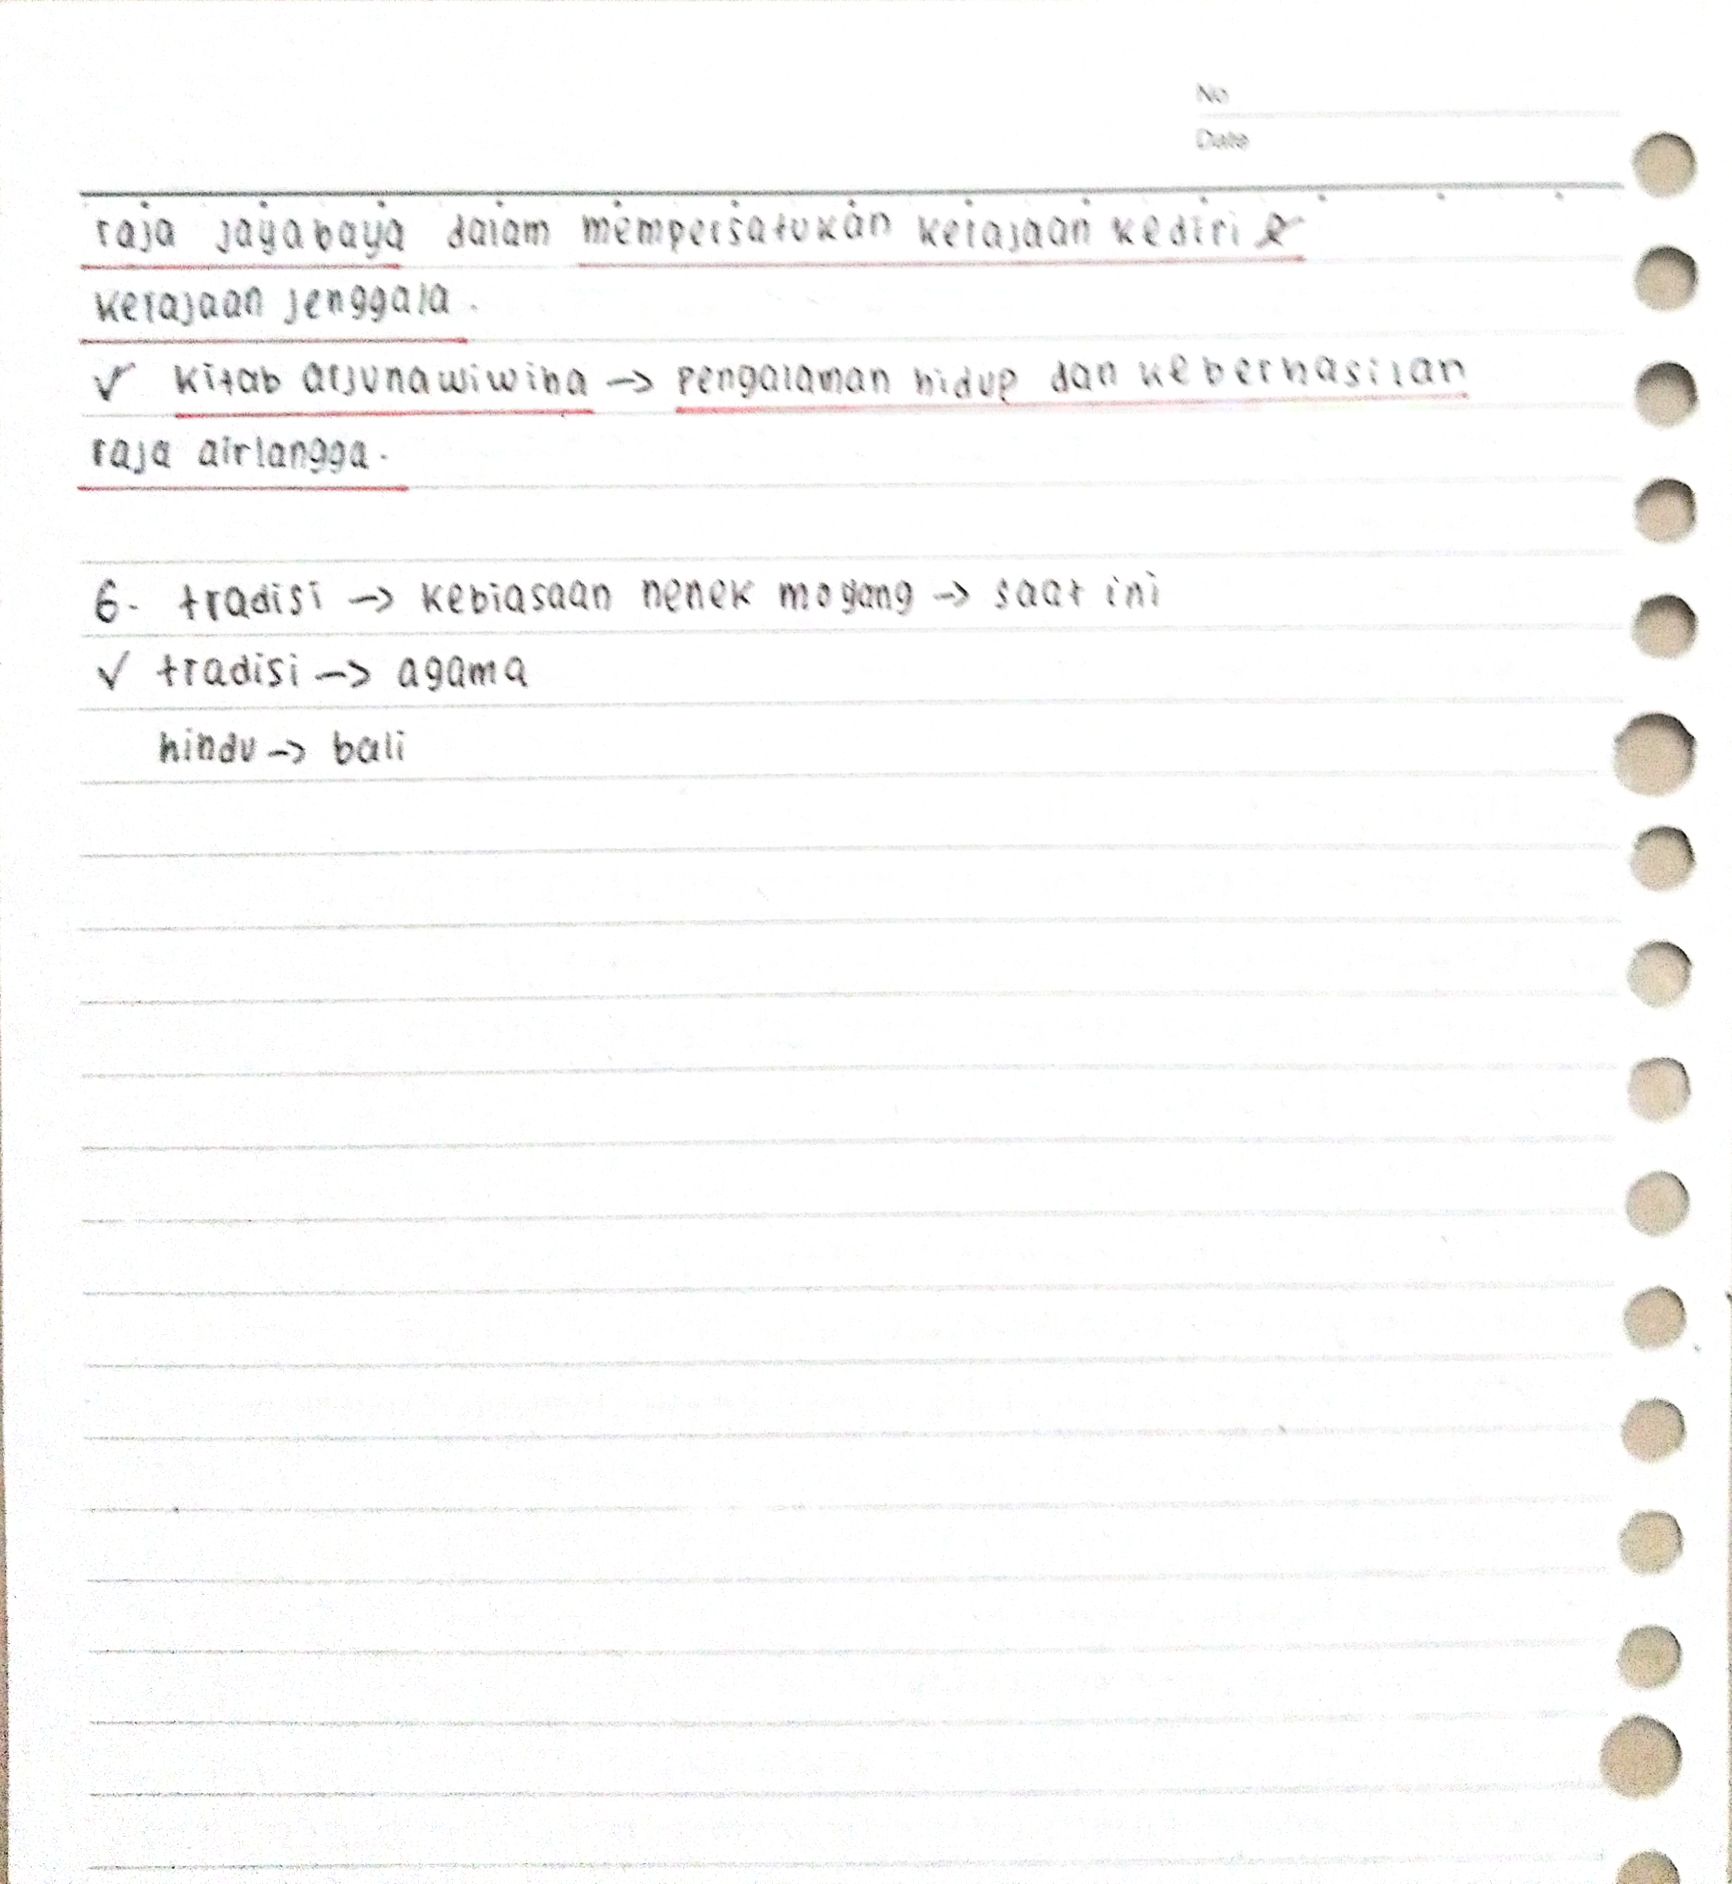 No
Date
raja jayabaya dalam mempersatukan kerajaan kediri &
kerajaan jenggala.
✓ kitab arjunawiwiha -> pengalaman hidup dan keberhasilan
raja airlangga.
6. tradisi -> kebiasaan nenek moyang -> saat ini
✓ tradisi -> agama
hindu -> bali